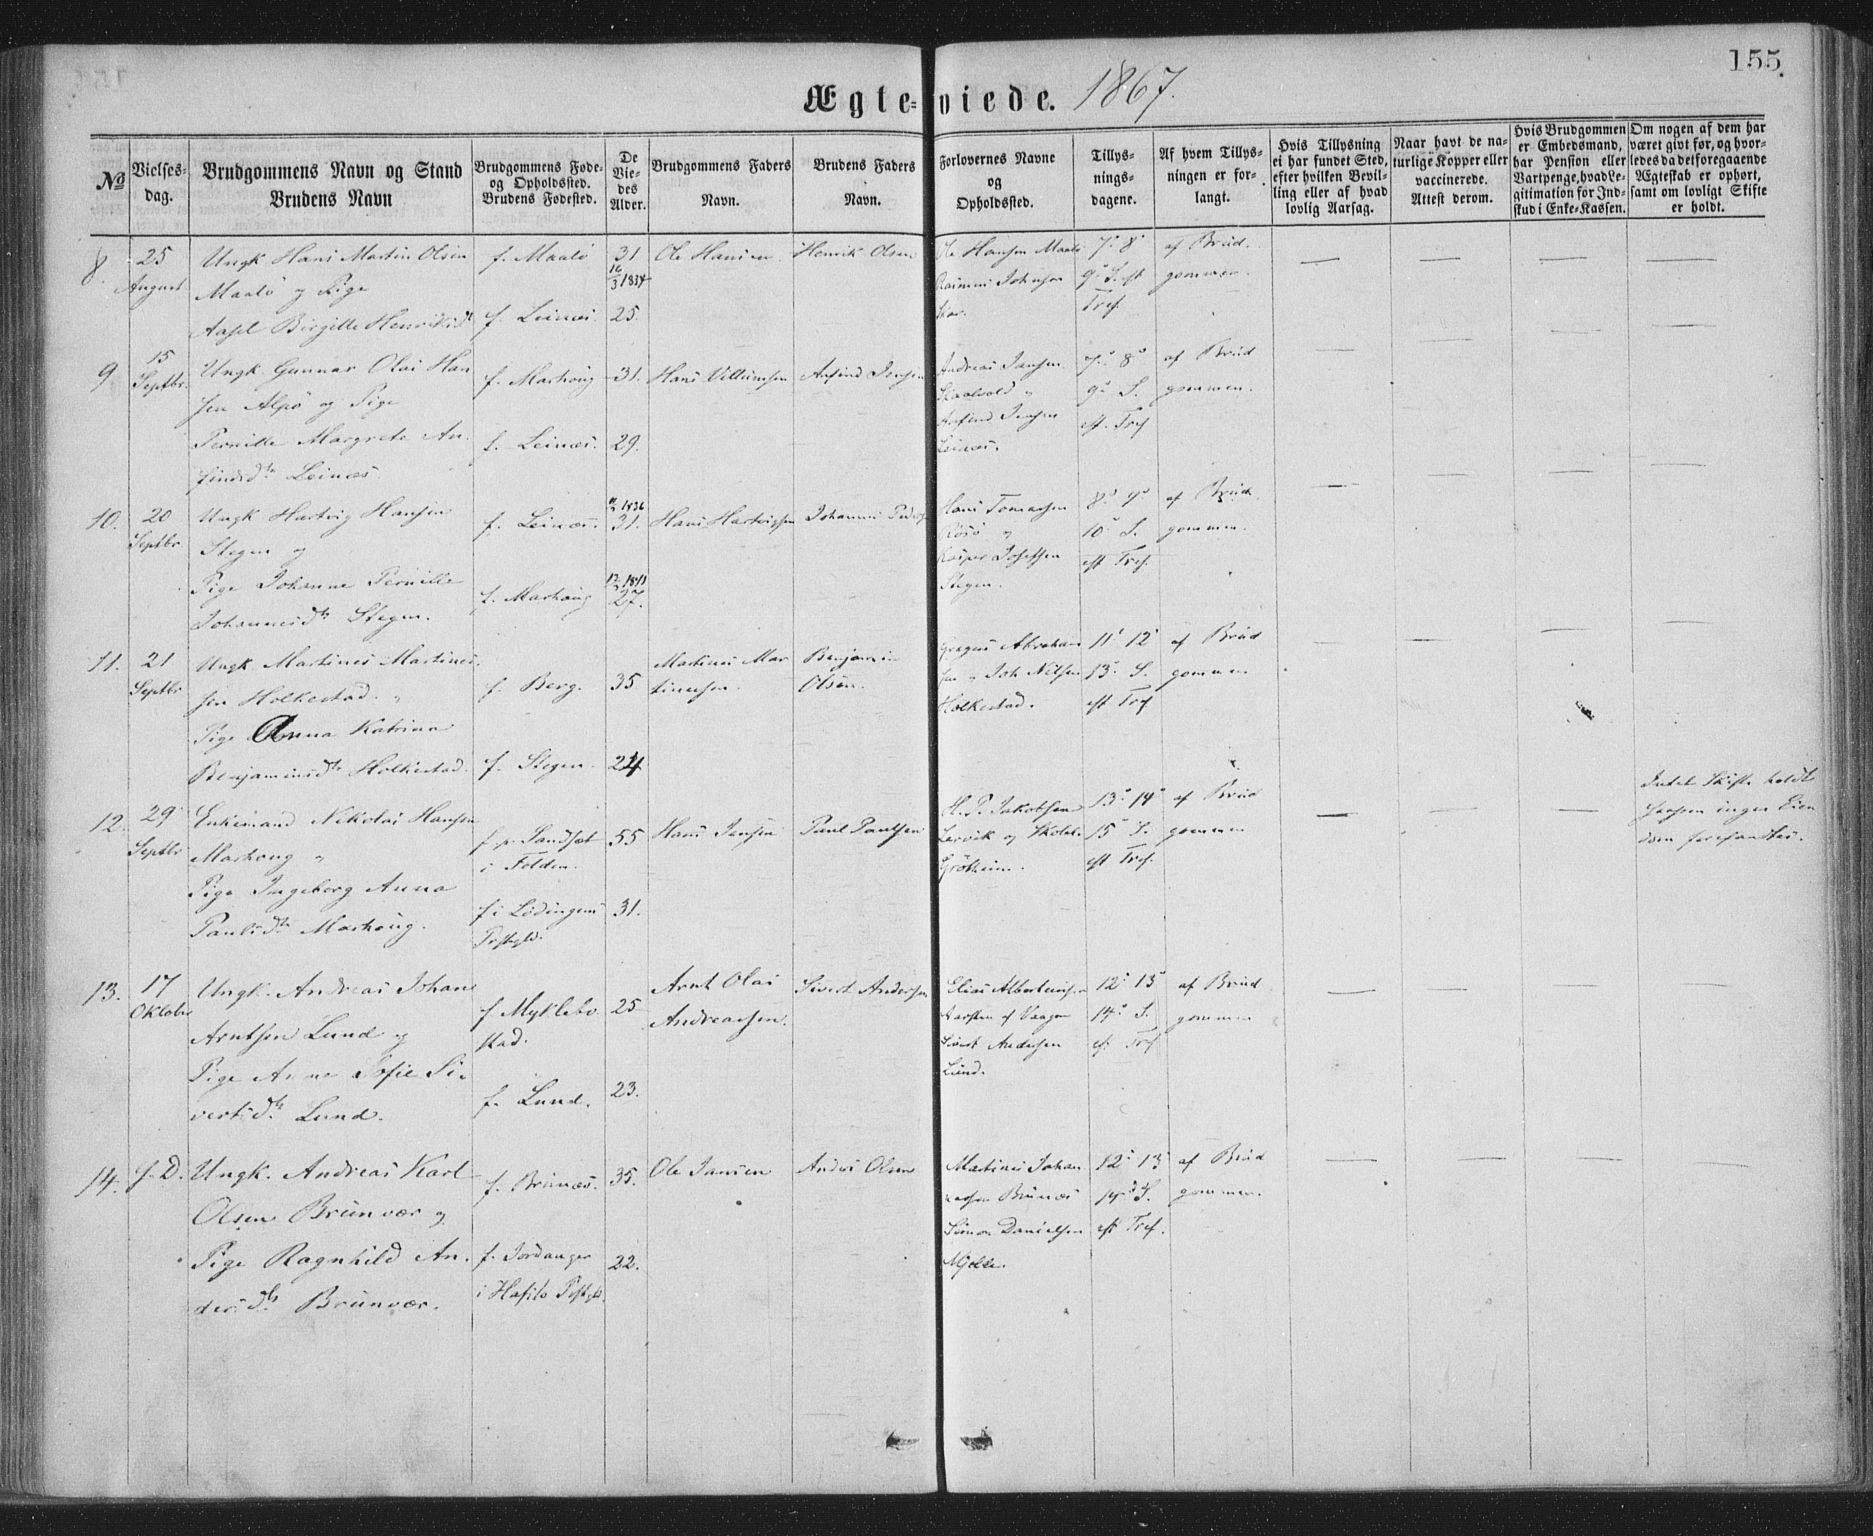 155.
Ægteviede. 1867.
No
Vielses-dag.
Brudgommens Navn og Stand
Brudens Navn
Brudgommens Føde- og Opholdssted.
Brudens Fødested.
De Viedes Alder.
Brudgommens Faders Navn.
Brudens Faders Navn.
Forlovernes Navne og Opholdssted.
Tillysningsdagene.
Af hvem Tillysningen er forlangt.
Hvis Tillysning ei har fundet Sted, efter hvilken Bevilling eller af hvad lovlig Aarsag.
Naar havt de naturlige Kopper eller vaccinerede. Attest derom.
Hvis Brudgommen er Embedsmand, har Pension eller Vartpenge, hvad Legitimation for Indskud i Enke-Kassen.
Om nogen af dem har været givt før, og hvorledes da det foregaaende Ægteskab er ophørt, samt om lovligt Skifte er holdt.
8. 25 August
Ungk Hans Martin Olsen
Maalö og Pige
Birgitte Henriksdt
f. Maalö
f. Leines
31
16/3 1834
25.
Ole Hansen
Henrik Olsen
Ole Hansen Maalö
7de 8de
9de S. eft Tref.
af Brudgommen.
9 15 Septbr.
Ungk. Gunnar Olai Hansen Alpö og Pige
Pernille Margrete Anfindsdtr Leines
f. Marhoug
f. Leines.
31.
29.
Hans Villumsen
Anfind Jensen
Andreas Jansen
Skaalvold
Anfind Jensen
Leines.
7de 8de
9de S.
eft. Tref
af Brudgommen.
10. 20 Septbr
Ungk Hartvig Hansen
Stegen og
Pige Johanne Pernille
Johannesdtr Stegen.
f. Leines.
f. Marhoug
1836
31.
1841
27.
Hans Hartvigsen
Johannes Peders
Hans Tomassen
Rösö og
Kasper Josefsen
Stegen.
8de 9de
10de S.
eft Tref.
af Brudgommen.
11. 21 Septbr
Ungk Martines Martinessen Holkestad.
Pige Anna Katrina
Benjaminsdtr Holkestad.
f. Berg.
f. Stegen.
35
24
Martines Martinessen.
Benjamin Olsen.
Abrahamsen Joh Nilsen
Holkestad.
11te 12te
13de S.
eft Tref
af Brudgommen
12. 29 Septbr
Enkemand Nikolai Hansen
Marhoug
Pige Ingeborg Anna
Paulsdtr Marhoug.
f. p. Sandset
i Folden.
f i Lödingens
Prstgld.
55
31.
Hans Jansen
Paul Paulsen
H. P. Jakobsen
Lervik og Skolel.
Grötheim.
13de 14de
15de S.
eft Tref.
af Brudgommen
Intet Skifte holdt
saasom ingen Eiendom forefandtes.
13. 17 Oktober
Ungk. Andreas Johan
Arntsen Lund og
Pige Anne Sofie Sivertsdtr Lund.
f Myklebostad.
f. Lund.
25
23.
Arnt Olai
Andreassen.
Sivert Andersen
Elias
af Vaagen
Sivert Andersen
Lund.
12te 13de
14de S.
ef. Tref
af Brudgommen
14. s. D.
Ungk. Andreas Karl
Olsen Brunvær og
Pige Ragnhild Andersdtr Brunvær.
f. Brunvær.
f. Jordanger
i Hafslo Prstgld.
35.
22.
Ole Jansen
Anders Olsen
Martines Johannessen Brunvær
Simon Danielsen
12te 13de
14de S.
eft Tref.
af Brudgommen.